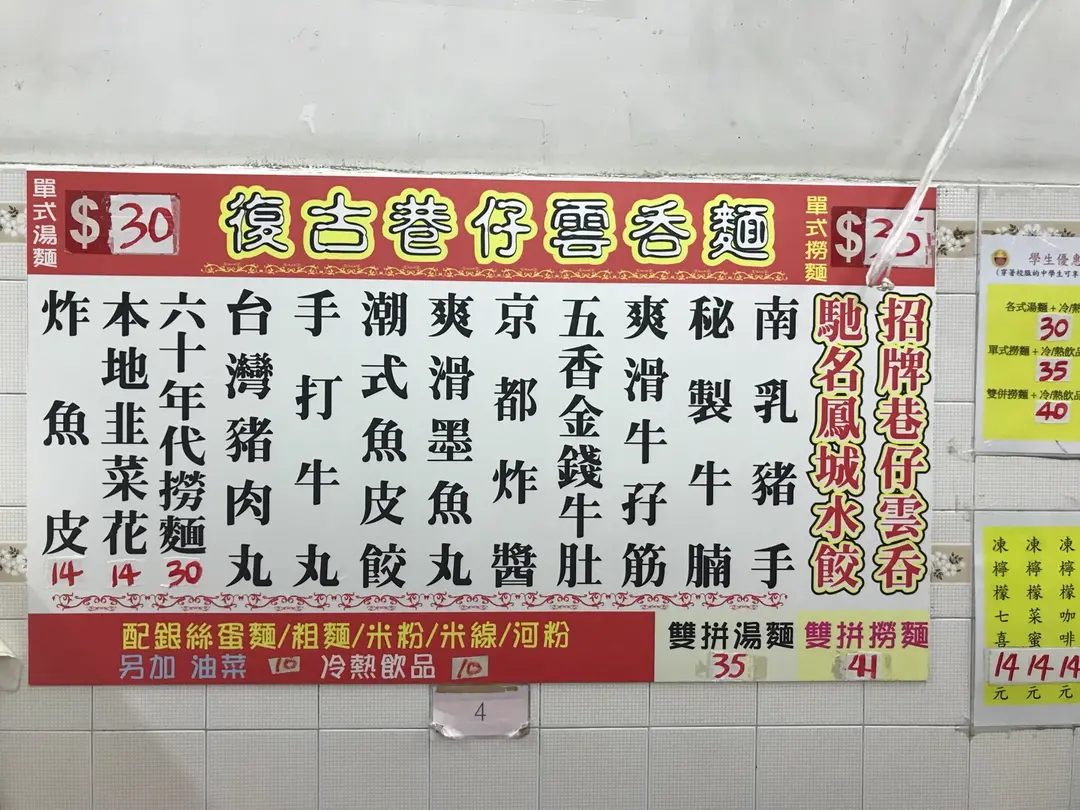 單式湯麵
$30
復古巷仔雲吞麵
單式撈麵
$35
招牌巷仔雲吞
馳名鳳城水餃
南乳豬手
秘製牛腩
爽滑牛孖筋
五香金錢牛肚
京都炸醬
爽滑墨魚丸
潮式魚皮餃
手打牛丸
台灣豬肉丸
六十年代撈麵 30
本地韭菜花 14
炸魚皮 14
配銀絲蛋麵/粗麵/米粉/米線/河粉
另加 油菜 10 冷熱飲品 10
雙拼湯麵
35
雙拼撈麵
41
4
學生優惠
(穿著校服的中學生可享
各式湯麵+冷/熱
30
單式撈麵+冷/熱飲
35
雙併撈麵+冷/熱飲品
40
凍檸檬七喜 14元
凍檸檬菜蜜 14元
凍檸檬咖啡 14元